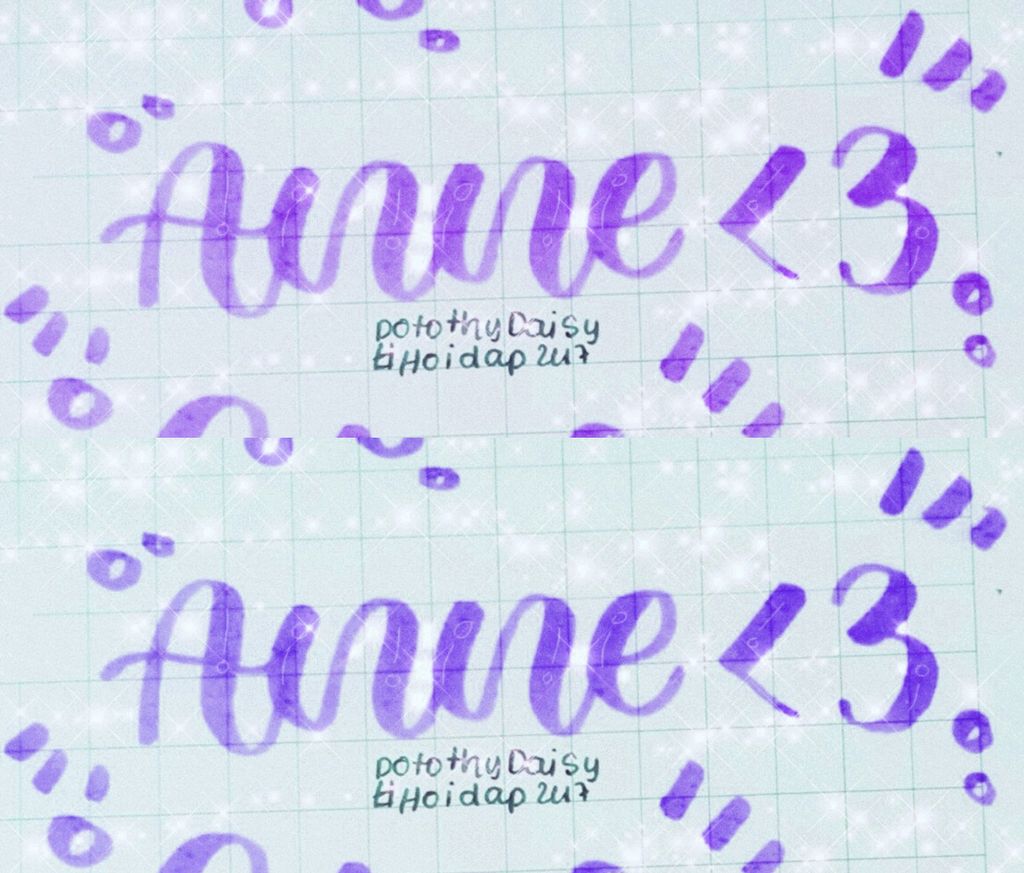 Anne <3
DotothyDaisy
tiHoidap247
Anne <3
DotothyDaisy
tiHoidap247